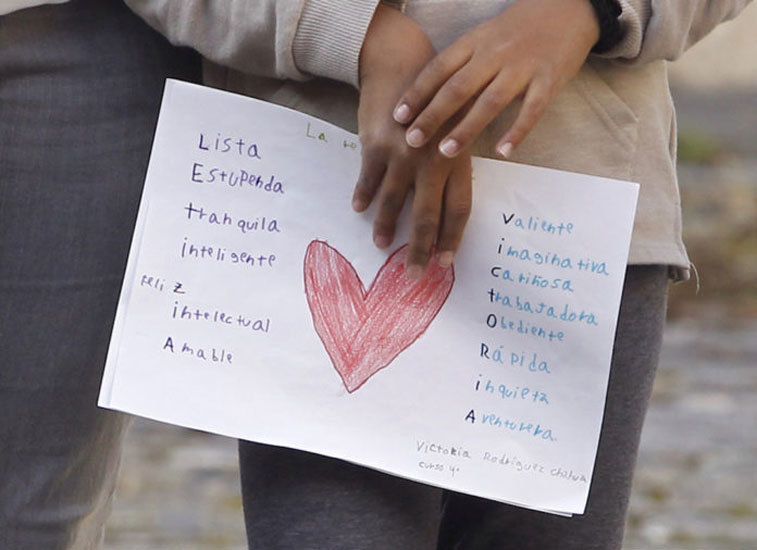 La
Lista
Estupenda
tranquila
inteligente
feliz
intelectual
Amable
Valiente
imaginativa
cariñosa
trabajadora
Obediente
Rápida
inquieta
Aventurera.
Victoria Rodríguez
curso 4º